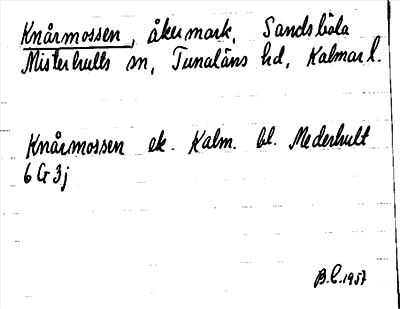 Knårmossen, åkermark, Sandsböla
Misterhults sn, Tunaläns hd, Kalmar l.
Knårmossen ek. Kalm. bl. Mederhult
6 G 3j
B.C. 1957